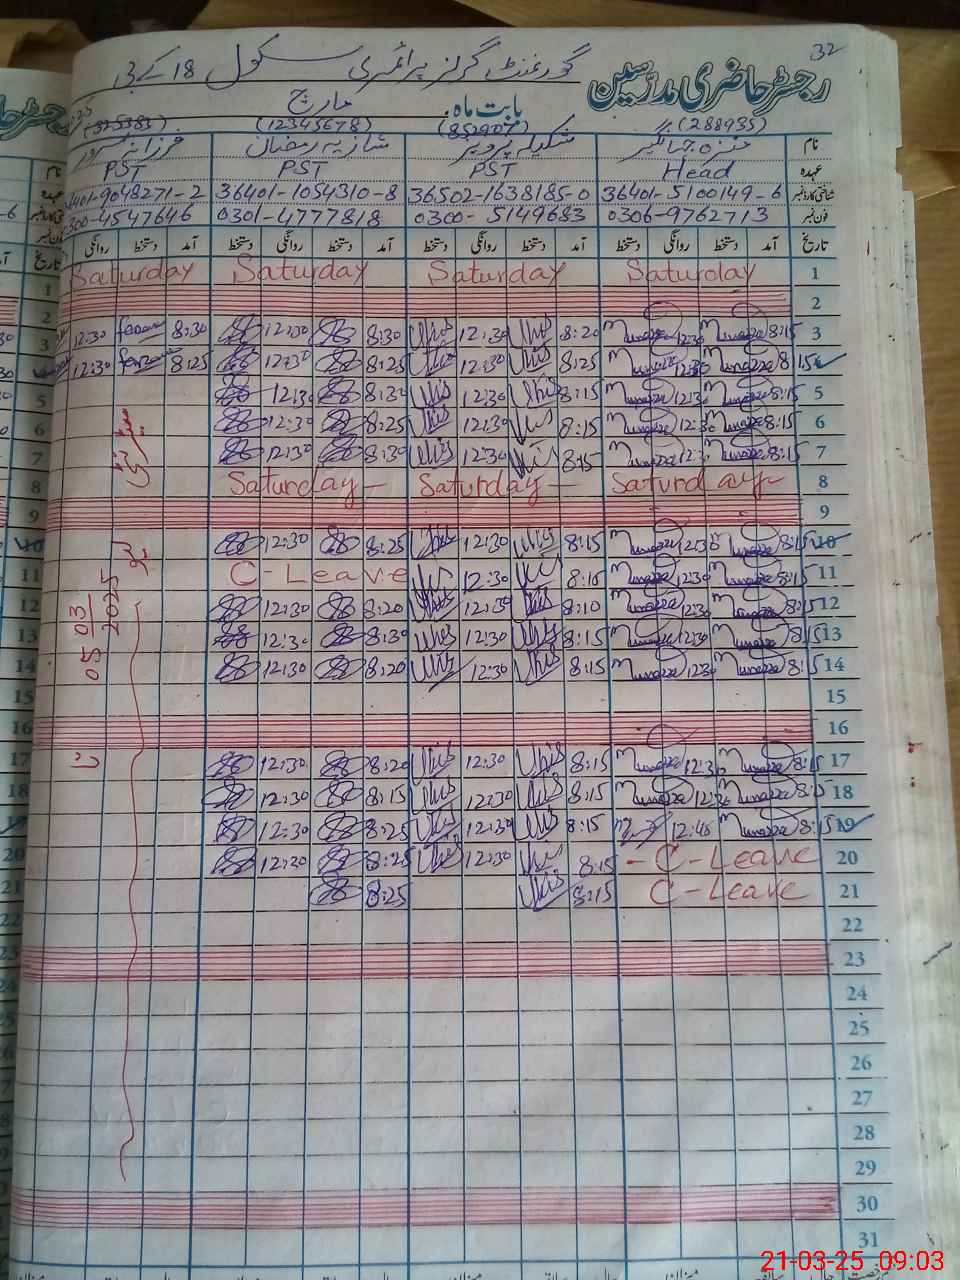 32
رجسٹر حاضری مدرسین
گورنمنٹ گرلز پرائمری سکول 18 کے بی
بابت ماہ مارچ
(288935) (852907) (12345678) (325383)
نام منزہ جہانگیر شکیلہ پرویز شازیہ رمضان فرزانہ
عہدہ Head PST PST PST
شناختی کارڈ نمبر 36401-5100149-6 36502-1638185-0 36401-1054310-8 401-9048271-2
فون نمبر 0306-9762713 0300-5149683 0301-4777818 300-4547646
تاریخ آمد دستخط روانگی دستخط آمد دستخط روانگی دستخط آمد دستخط روانگی دستخط آمد دستخط روانگی
1 Saturday Saturday Saturday Saturday
2
3 8:15 12:30 8:20 12:30 8:30 12:30 8:30 12:30
4 8:15 12:30 8:25 12:30 8:25 12:30 8:25 12:30
5 8:15 12:30 8:15 12:30 8:30 12:30
6 8:15 12:30 8:15 12:30 8:25 12:30
7 8:15 12:30 8:15 12:30 8:30 12:30
8 Saturday Saturday Saturday
9
10 8:15 12:30 8:15 12:30 8:25 12:30
11 8:15 12:30 8:10 12:30 C-Leave
12 8:15 12:30 8:10 12:30 8:20 12:30
13 8:15 12:30 8:15 12:30 8:30 12:30
14 8:15 12:30 8:15 12:30 8:20 12:30
05/03/2025
15
16
17 8:15 12:30 8:15 12:30 8:20 12:30
18 8:15 12:30 8:15 12:30 8:15 12:30
19 8:15 12:45 8:15 12:30 8:25 12:30
20 C-Leave 8:15 12:30 8:25 12:30
21 C-Leave 8:15 8:25
22
23
24
25
26
27
28
29
30
31
21-03-25 09:03